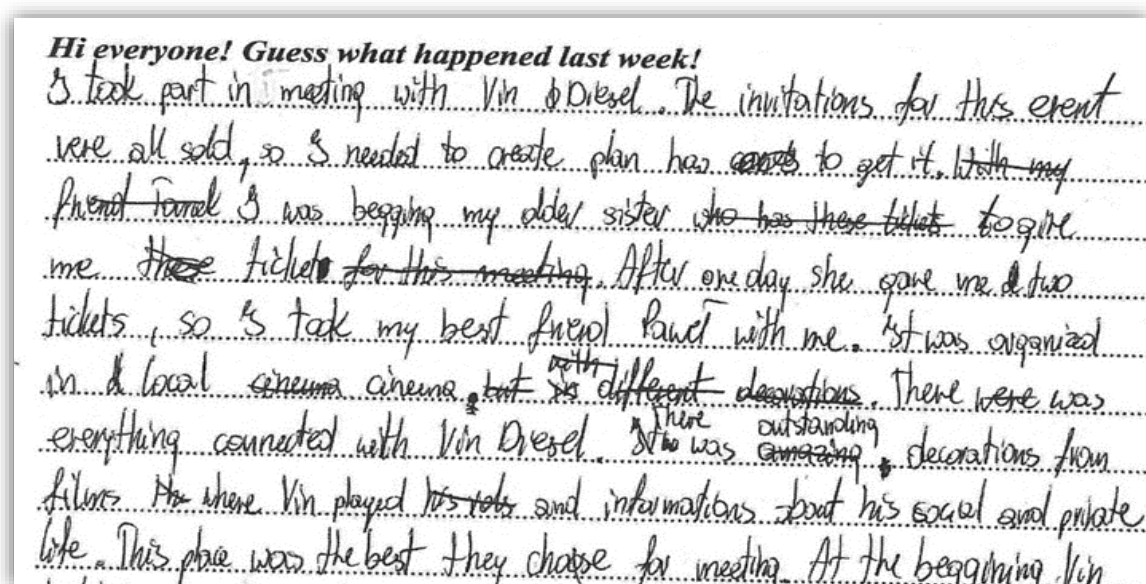 Hi everyone! Guess what happened last week!
I took part in meeting with Vin Diesel. The invitations for this event
were all sold, so I needed to create plan has to get it. With my
friend Paweł I was begging my older sister who has these tickets to give
me these ticket for this meeting. After one day she gave me two
tickets, so I took my best friend Paweł with me. It was organized
in local cinema cinema. but with different decorations. There were was
everything connected with Vin Diesel. There was outstanding amazing decorations from
films where Vin played his role and informations about his social and private
life. This place was the best they choose for meeting. At the beggining Vin